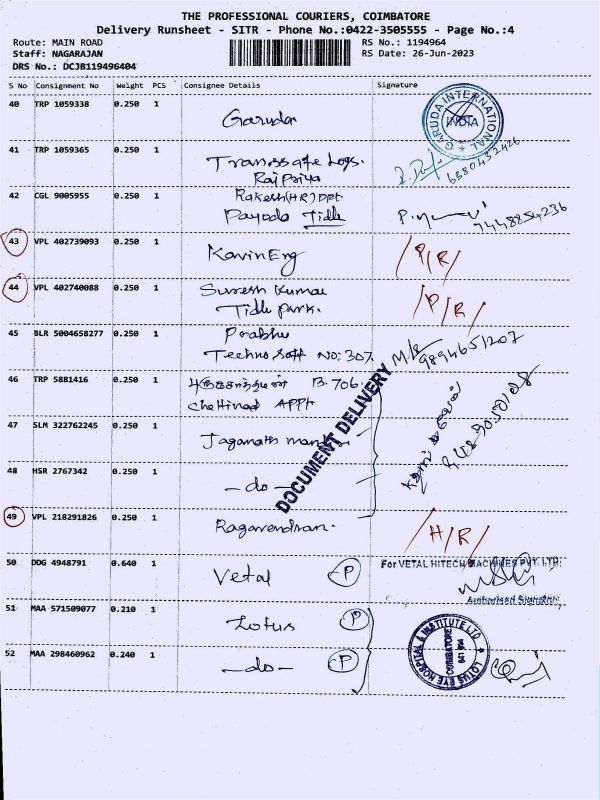 THE PROFESSIONAL COURIERS, COIMBATORE
Delivery Runsheet - SITR - Phone No.:0422-3505555 - Page No.:4
Route: MAIN ROAD RS No.: 1194964
Staff: NAGARAJAN RS Date: 26-Jun-2023
DRS No.: DCJB119496404
S No Consignment No Weight PCS Consignee Details Signature
40 TRP 1059338 0.250 1 Garuda
GARUDA INTERNATIONAL
INDIA
41 TRP 1059365 0.250 1 Transsafe Logs.
Rajpriya
6380432426
42 CGL 9005955 0.250 1 Rakesh(HR) Dpt.
Payoda Tidle
7448854236
43 VPL 402739093 0.250 1 KavinEng /P/R/
44 VPL 402740088 0.250 1 Suresh Kumar /P/R/
Tidle park.
45 BLR 5004658277 0.250 1 Prabhu
Techno Soft NO: 307. 9894651207
46 TRP 5881416 0.250 1 B.706.
Chettinad APPt
DOCUMENT DELIVERY
47 SLM 322762245 0.250 1 Jaganath
48 HSR 2767342 0.250 1 -do-
49 VPL 218291826 0.250 1 Ragavendran. /H/R/
50 DDG 4948791 0.640 1 Vetal P
For VETAL HITECH MACHINES PVT. LTD.
Authorised Signatory
51 MAA 571509077 0.210 1 Lotus P
52 MAA 298460962 0.240 1 -do- P
LOTUS EYE HOSPITAL & INSTITUTE LTD
COIMBATORE
641 014